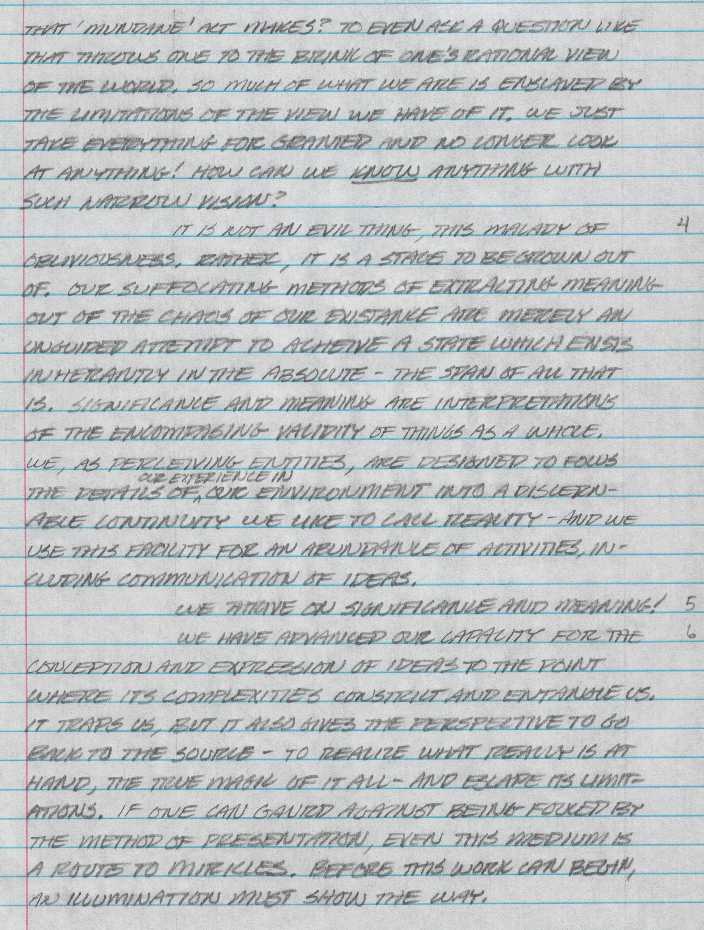 THAT 'MUNDANE' ACT MAKES? TO EVEN ASK A QUESTION LIKE
THAT THROWS ONE TO THE BRINK OF ONE'S RATIONAL VIEW
OF THE WORLD. SO MUCH OF WHAT WE ARE IS ENSLAVED BY
THE LIMITATIONS OF THE VIEW WE HAVE OF IT. WE JUST
TAKE EVERYTHING FOR GRANTED AND NO LONGER LOOK
AT ANYTHING! HOW CAN WE KNOW ANYTHING WITH
SUCH NARROW VISION?
IT IS NOT AN EVIL THING, THIS MALADY OF 4
OBLIVIOUSNESS. RATHER, IT IS A STAGE TO BE GROWN OUT
OF. OUR SUFFOCATING METHODS OF EXTRACTING MEANING
OUT OF THE CHAOS OF OUR EXISTANCE ARE MERELY AN
UNGUIDED ATTEMPT TO ACHEIVE A STATE WHICH EXISTS
INHERANTLY IN THE ABSOLUTE - THE SPAN OF ALL THAT
IS. SIGNIFICANCE AND MEANING ARE INTERPRETATIONS
OF THE ENCOMPASING VALIDITY OF THINGS AS A WHOLE.
WE, AS PERCEIVING ENTITIES, ARE DESIGNED TO FOCUS
OUR EXPERIENCE IN
THE DETAILS OF ^ OUR ENVIRONMENT INTO A DISCERN-
ABLE CONTINUITY WE LIKE TO CALL REALITY - AND WE
USE THIS FACILITY FOR AN ABUNDANCE OF ACTIVITIES, IN-
CLUDING COMMUNICATION OF IDEAS.
WE THRIVE ON SIGNIFICANCE AND MEANING! 5
WE HAVE ADVANCED OUR CAPACITY FOR THE 6
CONCEPTION AND EXPRESSION OF IDEAS TO THE POINT
WHERE ITS COMPLEXITIES CONSTRICT AND ENTANGLE US.
IT TRAPS US, BUT IT ALSO GIVES THE PERSPECTIVE TO GO
BACK TO THE SOURCE - TO REALIZE WHAT REALLY IS AT
HAND, THE TRUE MAGIC OF IT ALL - AND ESCAPE ITS LIMIT-
ATIONS. IF ONE CAN GAURD AGAINST BEING FOOLED BY
THE METHOD OF PRESENTATION, EVEN THIS MEDIUM IS
A ROUTE TO MIRICLES. BEFORE THIS WORK CAN BEGIN,
AN ILLUMINATION MUST SHOW THE WAY.